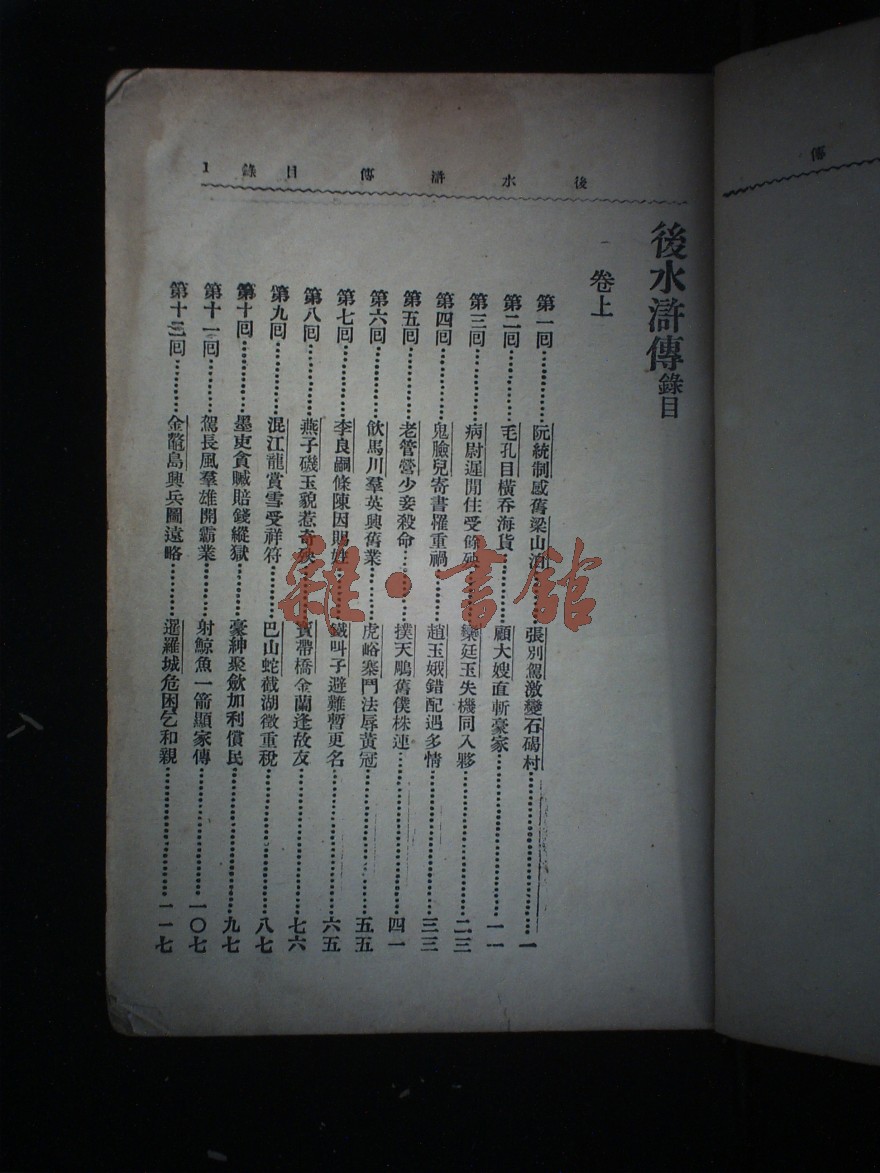 傳
後水滸傳目錄 1
後水滸傳錄目
卷上
第一回………阮統制感舊梁山泊………張別駕激變石碣村………一
第二回………毛孔目橫吞海貨………顧大嫂直斬豪家………一一
第三回………病尉遲閒住受餘殃………欒廷玉失機同入夥………二三
第四回………鬼臉兒寄書罹重禍………趙玉娥錯配遇多情………三三
第五回………老管營少妾殺命………撲天鵰舊僕株連………四一
第六回………飲馬川羣英興舊業………虎峪寨鬥法辱黃冠………五五
第七回………李良嗣條陳因賜姓………鐵叫子避難暫更名………六五
第八回………燕子磯玉貌惹奇殃………寶帶橋金蘭逢故友………七六
第九回………混江龍賞雪受祥符………巴山蛇截湖徵重稅………八七
第十回………墨吏貪贓賠錢縱獄………豪紳聚斂加利償民………九七
第十一回………駕長風羣雄開霸業………射鯨魚一箭顯家傳………一〇七
第十二回………金鰲島興兵圖遠略………暹羅城危困乞和親………一一七
雜·書館